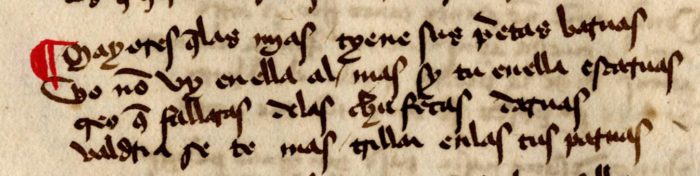 Mayores q̄ las mjas tyene sus p̄etas baruas
yo nō vy en ella al mas sy tu en ella escaruas
creo q̄ fallaras delas chufetas daruas
valdria se te mas trillar enlas tus paruas